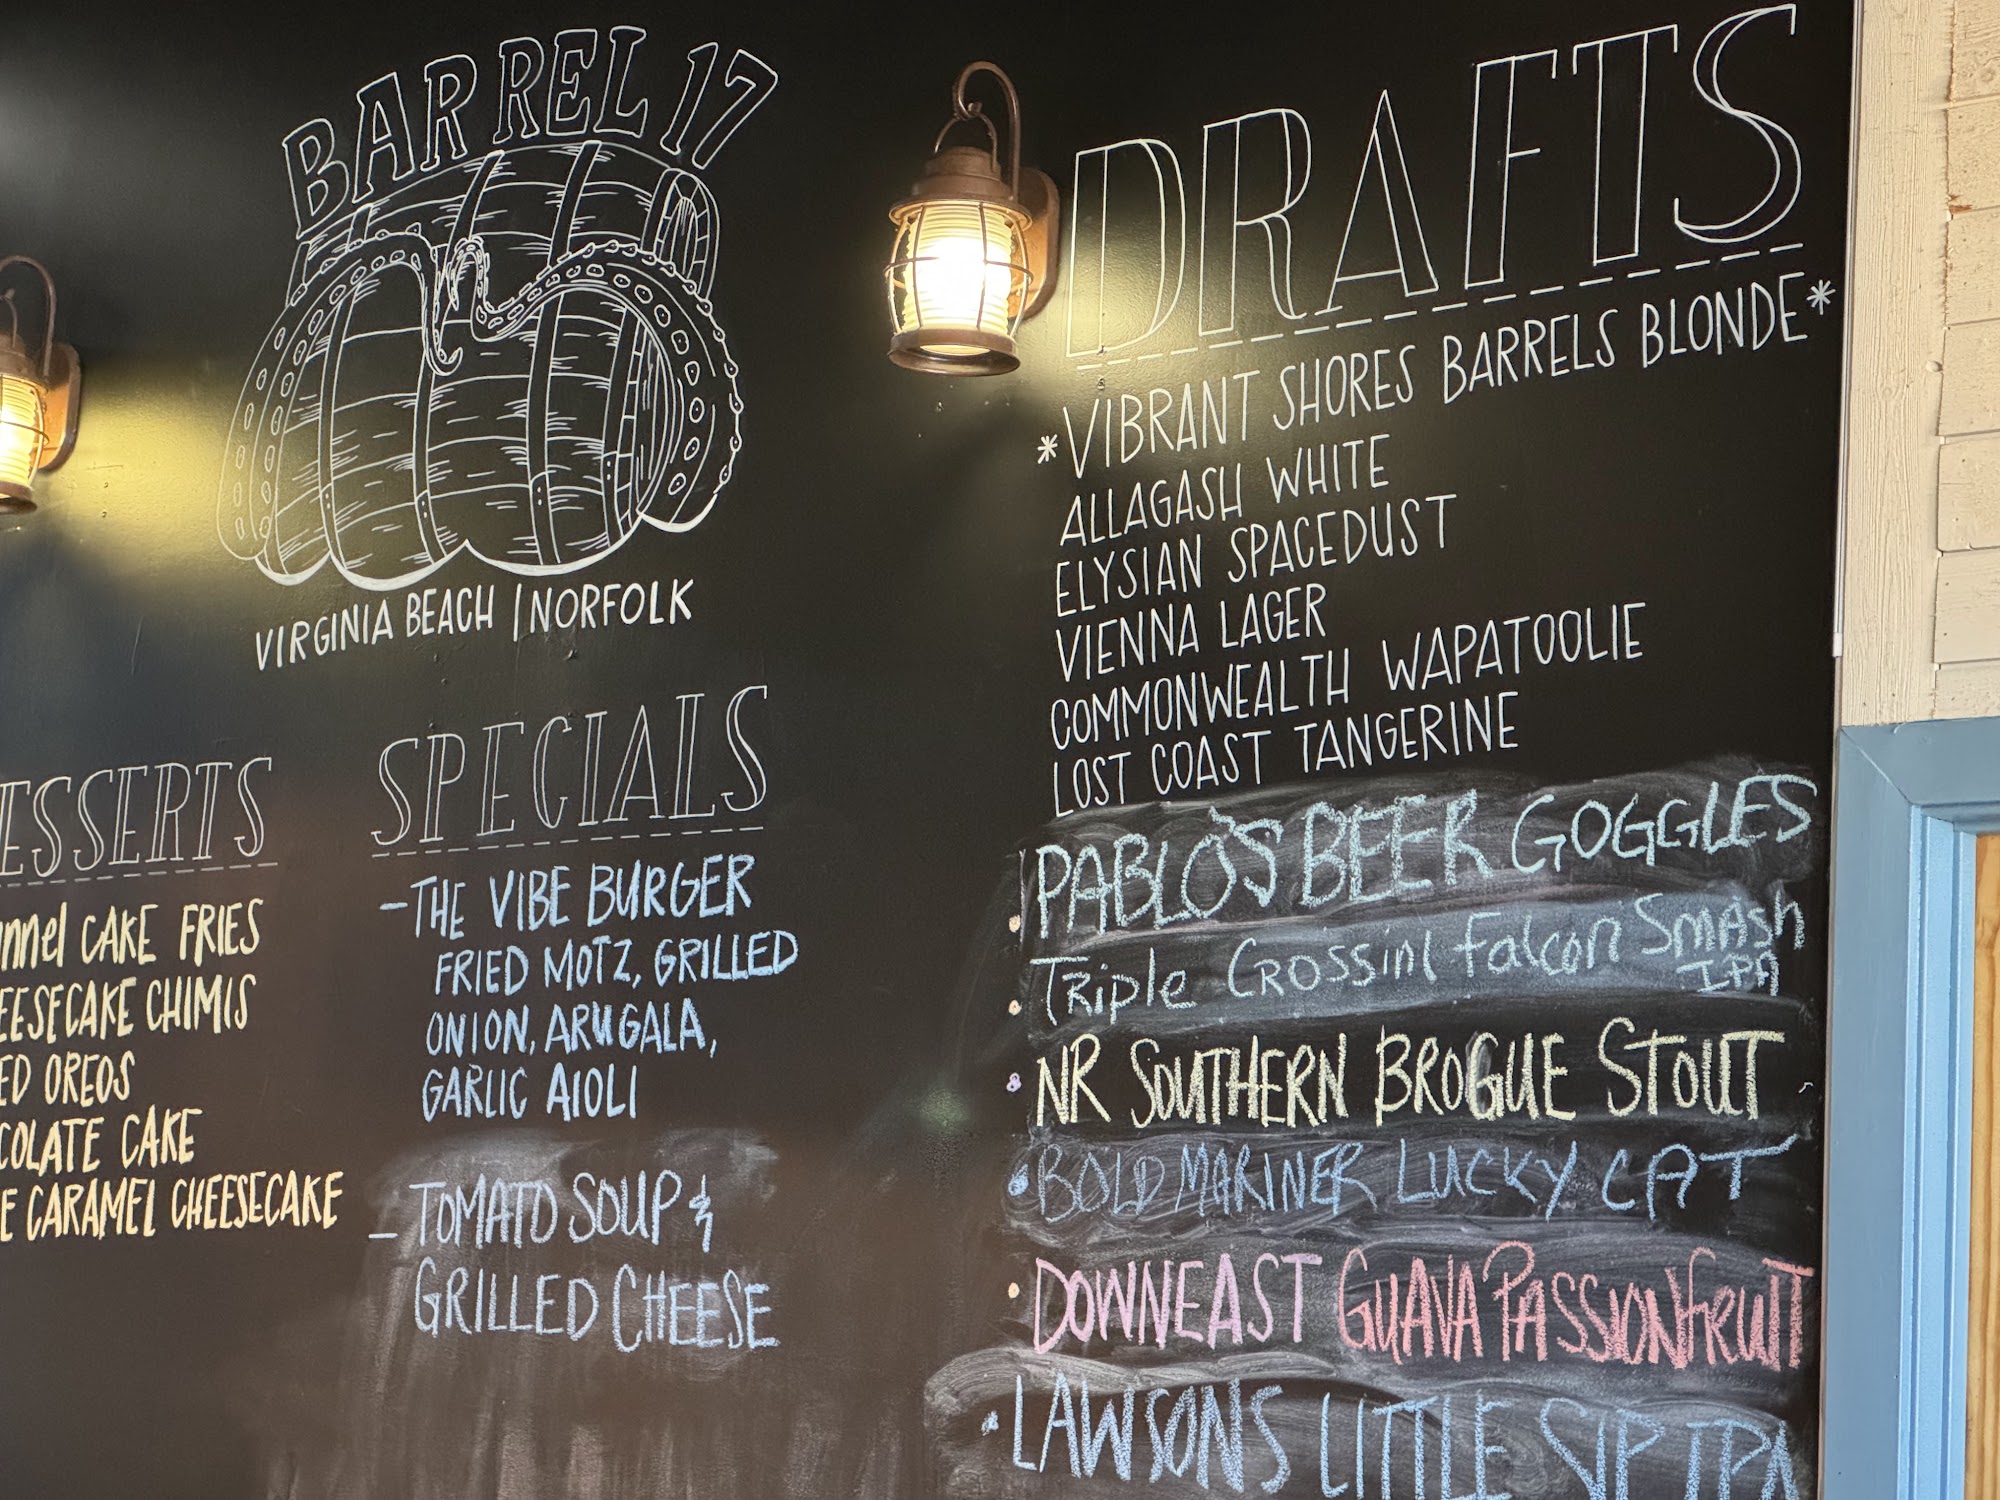 BARREL 17
VIRGINIA BEACH | NORFOLK
ESSERTS
nnel CAKE FRIES
EESECAKE CHIMIS
ED OREOS
COLATE CAKE
E CARAMEL CHEESECAKE
SPECIALS
- THE VIBE BURGER
FRIED MOTZ, GRILLED
ONION, ARUGALA,
GARLIC AIOLI
- TOMATO SOUP &
GRILLED CHEESE
DRAFTS
*VIBRANT SHORES BARRELS BLONDE*
ALLAGASH WHITE
ELYSIAN SPACEDUST
VIENNA LAGER
COMMONWEALTH WAPATOOLIE
LOST COAST TANGERINE
PABLO'S BEER GOGGLES
• Triple Crossing Falcon Smash
I.PA
• NR SOUTHERN BROGUE STOUT
• BOLD MARINER LUCKY CAT
• DOWNEAST GUAVA PASSIONFRUIT
• LAWSONS LITTLE SIP IPA